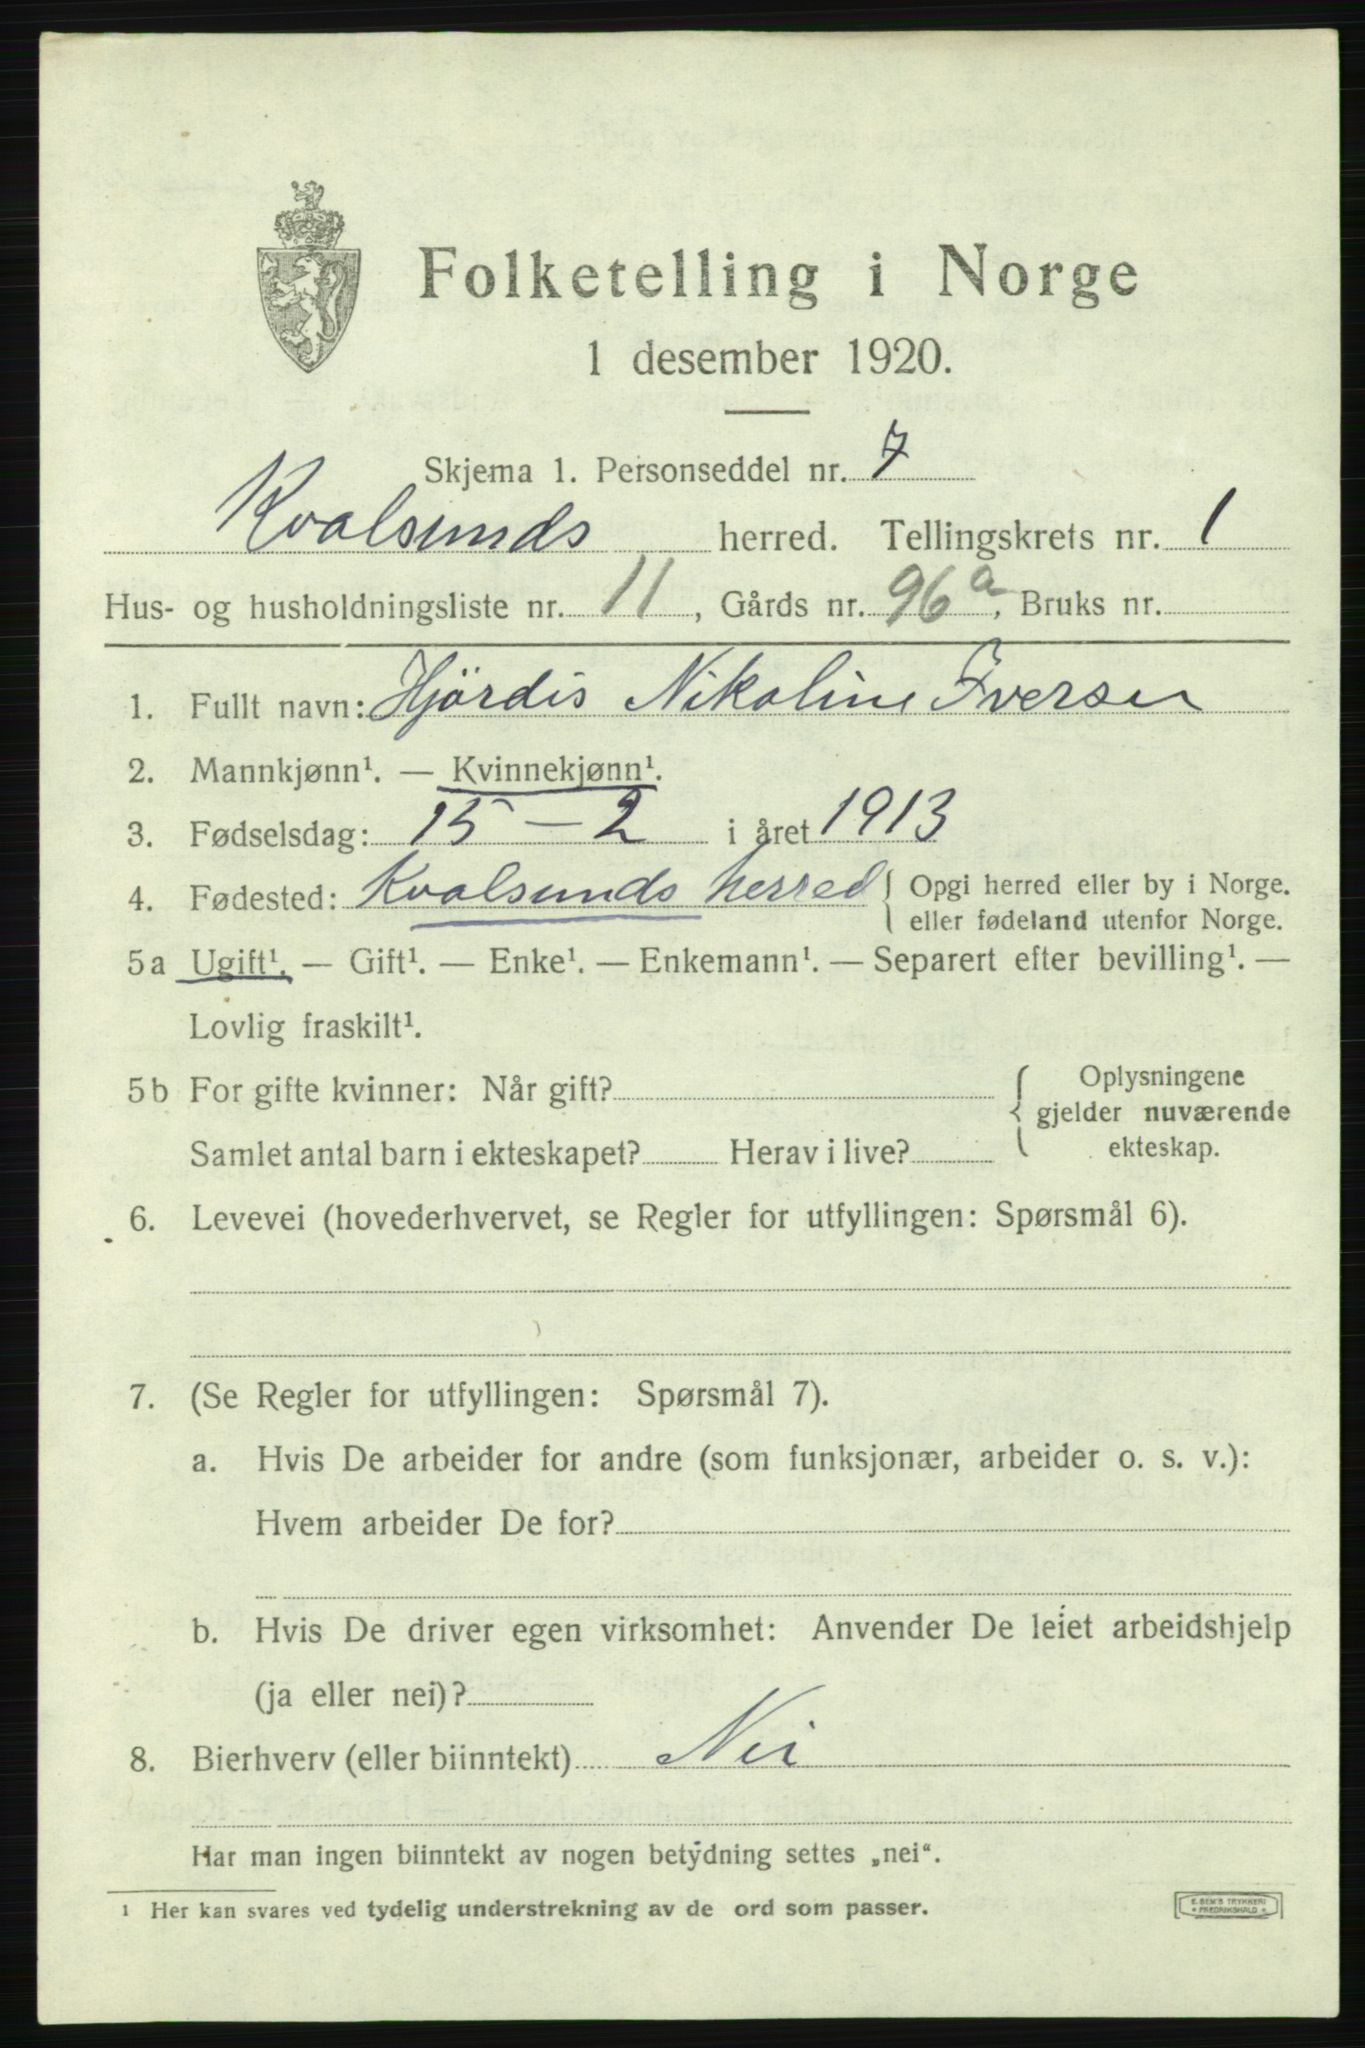 Folketelling i Norge
1 desember 1920.
Skjema 1. Personseddel nr. 7
Kvalsunds herred. Tellingskrets nr. 1
Hus- og husholdningsliste nr. 11, Gårds nr. 96a, Bruks nr.
1. Fullt navn: Hjördis Nikoline Iversen
2. Mannkjønn¹. — Kvinnekjønn¹.
3. Fødselsdag: 15 – 2 i året 1913
4. Fødested: Kvalsunds herred { Opgi herred eller by i Norge.
eller fødeland utenfor Norge.
5a Ugift¹. — Gift¹. — Enke¹. — Enkemann¹. — Separert efter bevilling¹. —
Lovlig fraskilt¹.
5b For gifte kvinner: Når gift?
Samlet antal barn i ekteskapet? Herav i live?
{ Oplysningene
gjelder nuværende
ekteskap.
6. Levevei (hovederhvervet, se Regler for utfyllingen: Spørsmål 6).
7. (Se Regler for utfyllingen: Spørsmål 7).
a. Hvis De arbeider for andre (som funksjonær, arbeider o. s. v.):
Hvem arbeider De for?
b. Hvis De driver egen virksomhet: Anvender De leiet arbeidshjelp
(ja eller nei)?
8. Bierhverv (eller biinntekt) Nei
Har man ingen biinntekt av nogen betydning settes „nei“.
¹ Her kan svares ved tydelig understrekning av de ord som passer.
E. SEM'S TRYKKERI
* FREDRIKSHALD *